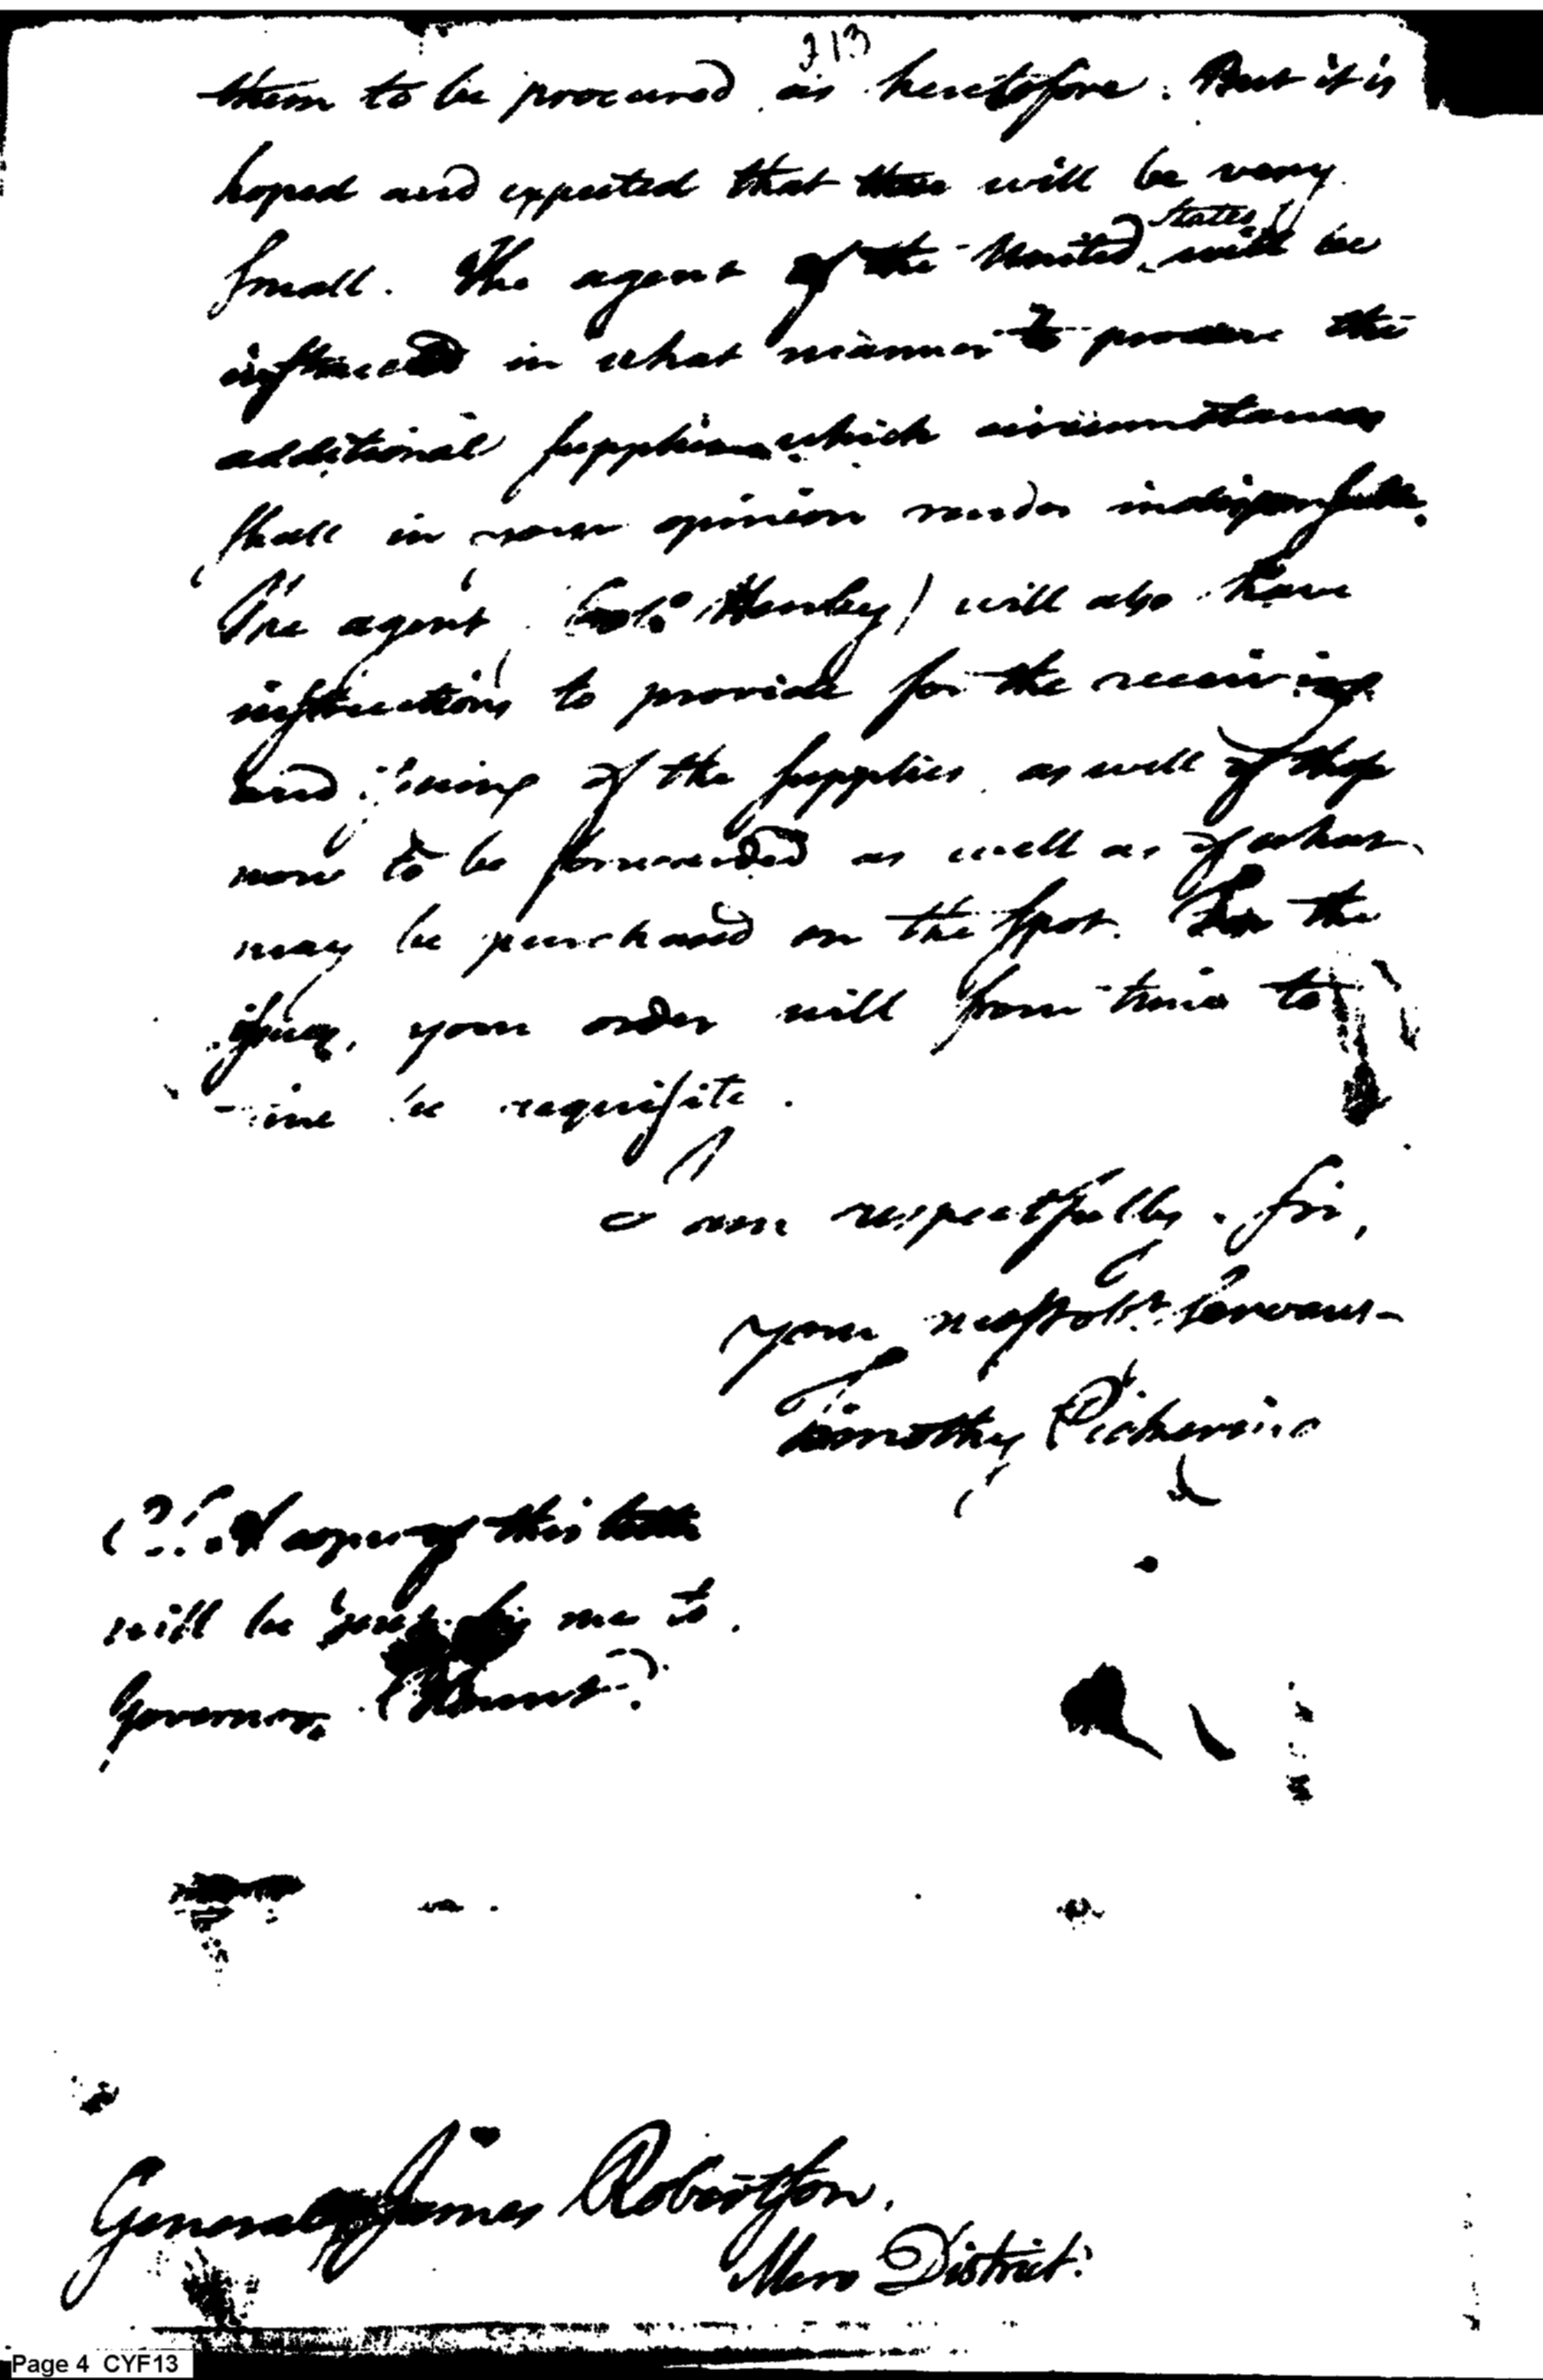 313
them to be procured as heretofore. But it is
hoped and expected that these will be very
small. The agent of the United States will be
instructed in what manner to procure the
additional supplies which circumstances
shall in your opinion render indispensable.
The agent (Colo. Henley) will also have
instructions to provide for the receiving
and issuing of the supplies as well of those
now to be forwarded as well as of what
may be purchased on the spot. For the
issues, your order will from time to
time be requisite.
I am respectfully, sir,
your most obt. servant
Timothy Pickering
A copy of this letter
will be sent by me to
Governor Blount.
General James Robertson.
Mero District.
Page 4 CYF13